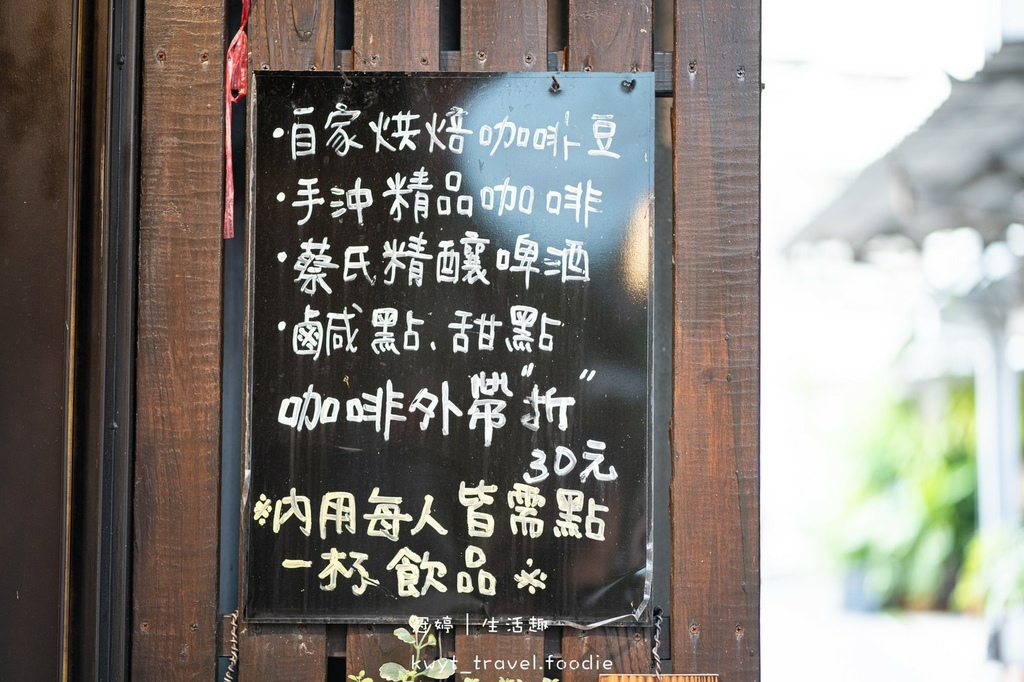 ·自家烘焙咖啡豆
·手沖精品咖啡
·蔡氏精釀啤酒
·鹹點、甜點
咖啡外帶"折"
30元
※內用每人皆需點
一杯飲品※
婷｜生活趣
kwyt_travel.foodie